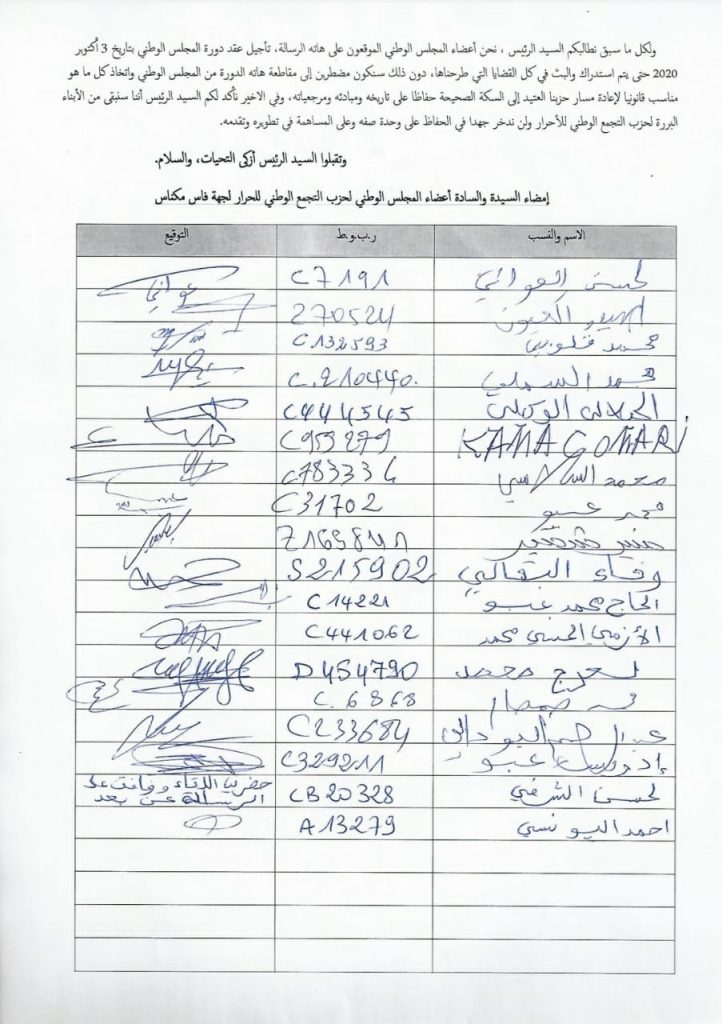 ولكل ما سبق نطالبكم السيد الرئيس ، نحن أعضاء المجلس الوطني الموقعون على هاته الرسالة، تأجيل عقد دورة المجلس الوطني بتاريخ 3 أكتوبر
2020 حتى يتم استدراك والبث في كل القضايا التي طرحناها، دون ذلك سنكون مضطرين إلى مقاطعة هاته الدورة من المجلس الوطني واتخاذ كل ما هو
مناسب قانونيا لإعادة مسار حزبنا العتيد إلى السكة الصحيحة حفاظا على تاريخه ومبادئه ومرجعياته، وفي الاخير نأكد لكم السيد الرئيس أننا سنبقى من الأبناء
البررة لحزب التجمع الوطني للأحرار ولن ندخر جهدا في الحفاظ على وحدة صفه وعلى المساهمة في تطويره وتقدمه.
وتقبلوا السيد الرئيس أزكى التحيات، والسلام.
إمضاء السيدة والسادة أعضاء المجلس الوطني لحزب التجمع الوطني للحرار لجهة فاس مكناس
الاسم والنسب ر.ب.و.ط التوقيع
لحسن العواني C7191 عواني
270524
محمد C132593
محمد السملي C.210440.
الجيلالي الوكيلي C444545
KAMAL GOMARI C953279
محمد السلاسي C783334
محمد عبو C31702
منير شنتير Z169841
وفاء البقالي S215902
الحاج محمد عبو C14221
الأزمي الحسني محمد C441062
لعرج محمد D454790
C.6868
C233684
إدريس عبو C329211
لحسن الشرفي CB20328 حضر بنا اللقاء ووافقت على الرسالة عن بعد
احمد اليونسي A13279